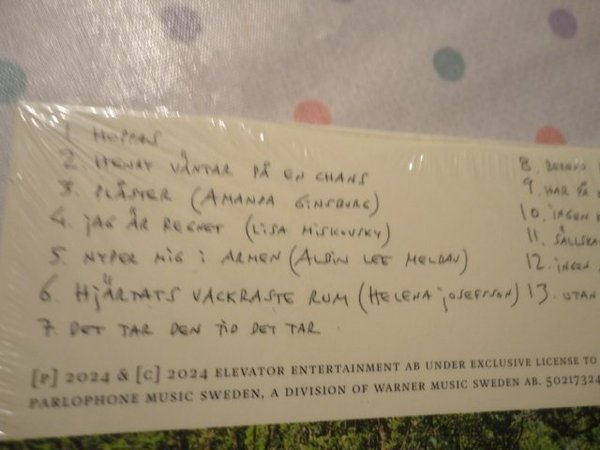 1. HOPPAS
2. HENRY VÄNTAR PÅ EN CHANS
3. PLÅSTER (AMANDA GINSBURG)
4. JAG ÄR REGNET (LISA MISKOVSKY)
5. NYPER MIG I ARMEN (ALBIN LEE MELDAU)
6. HJÄRTATS VACKRASTE RUM (HELENA JOSEFSSON)
7. DET TAR DEN TID DET TAR
8.
9. HAR PÅ
10. INGEN
11. SÄLLSKA
12. INGEN
13. UTAN
[P] 2024 & [C] 2024 ELEVATOR ENTERTAINMENT AB UNDER EXCLUSIVE LICENSE TO
PARLOPHONE MUSIC SWEDEN, A DIVISION OF WARNER MUSIC SWEDEN AB. 50217324